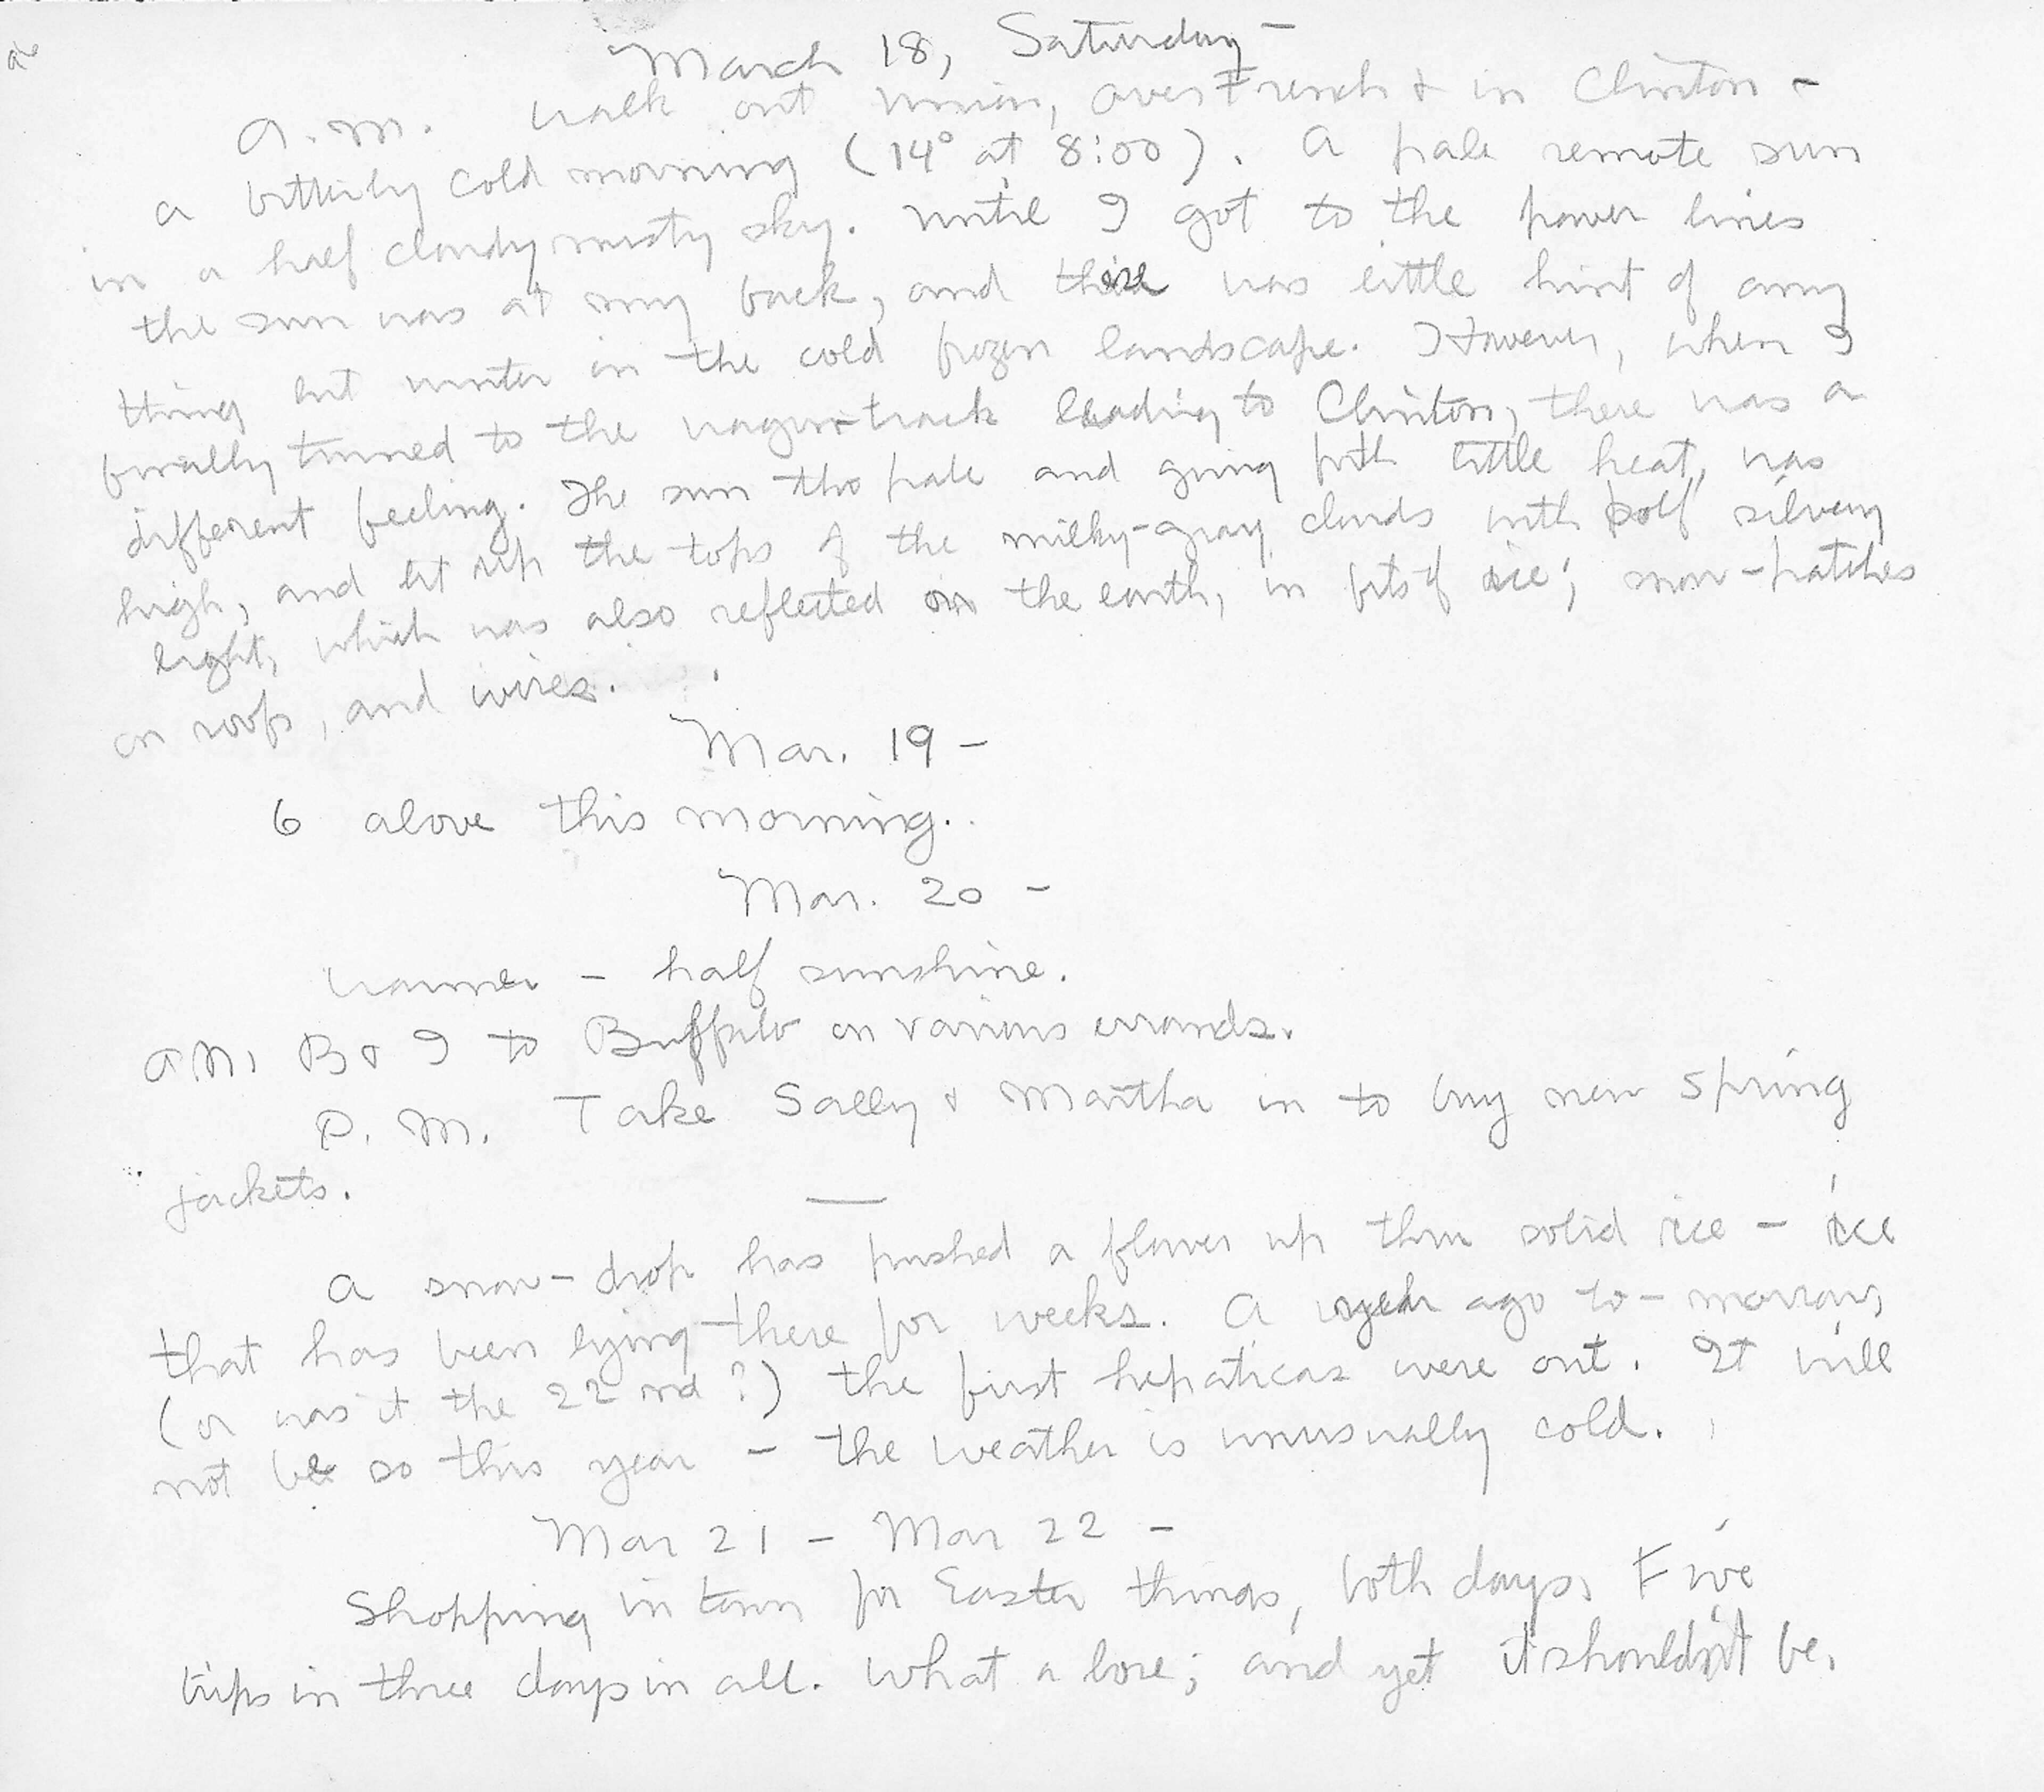 March 18, Saturday -
A.M. Walk out Union, over French & in Clinton -
a bitterly cold morning (14° at 8:00). A pale remote sun
in a half cloudy misty sky. Until I got to the power lines
the sun was at my back, and there was little hint of any
thing but winter in the cold frozen landscape. However, when I
finally turned to the wagon-track leading to Clinton, there was a
different feeling. The sun tho pale and giving forth little heat, was
high, and lit up the tops of the milky-gray clouds with soft silvery
light, which was also reflected on the earth, in bits of ice; snow-patches
on roofs, and wires.
Mar. 19 -
6 above this morning.
Mar. 20 -
Warmer - half sunshine.
A.M. B & I to Buffalo on various errands.
P.M. Take Sally & Martha in to buy new spring
jackets.
A snow-drop has pushed a flower up thru solid ice - ice
that has been lying there for weeks. A year ago to-morrow
(or was it the 22nd?) the first hepaticas were out. It will
not be so this year - the weather is unusually cold.
Mar 21 - Mar 22 -
Shopping in town for Easter things, both days. Five
trips in three days in all. What a bore; and yet it shouldn't be.